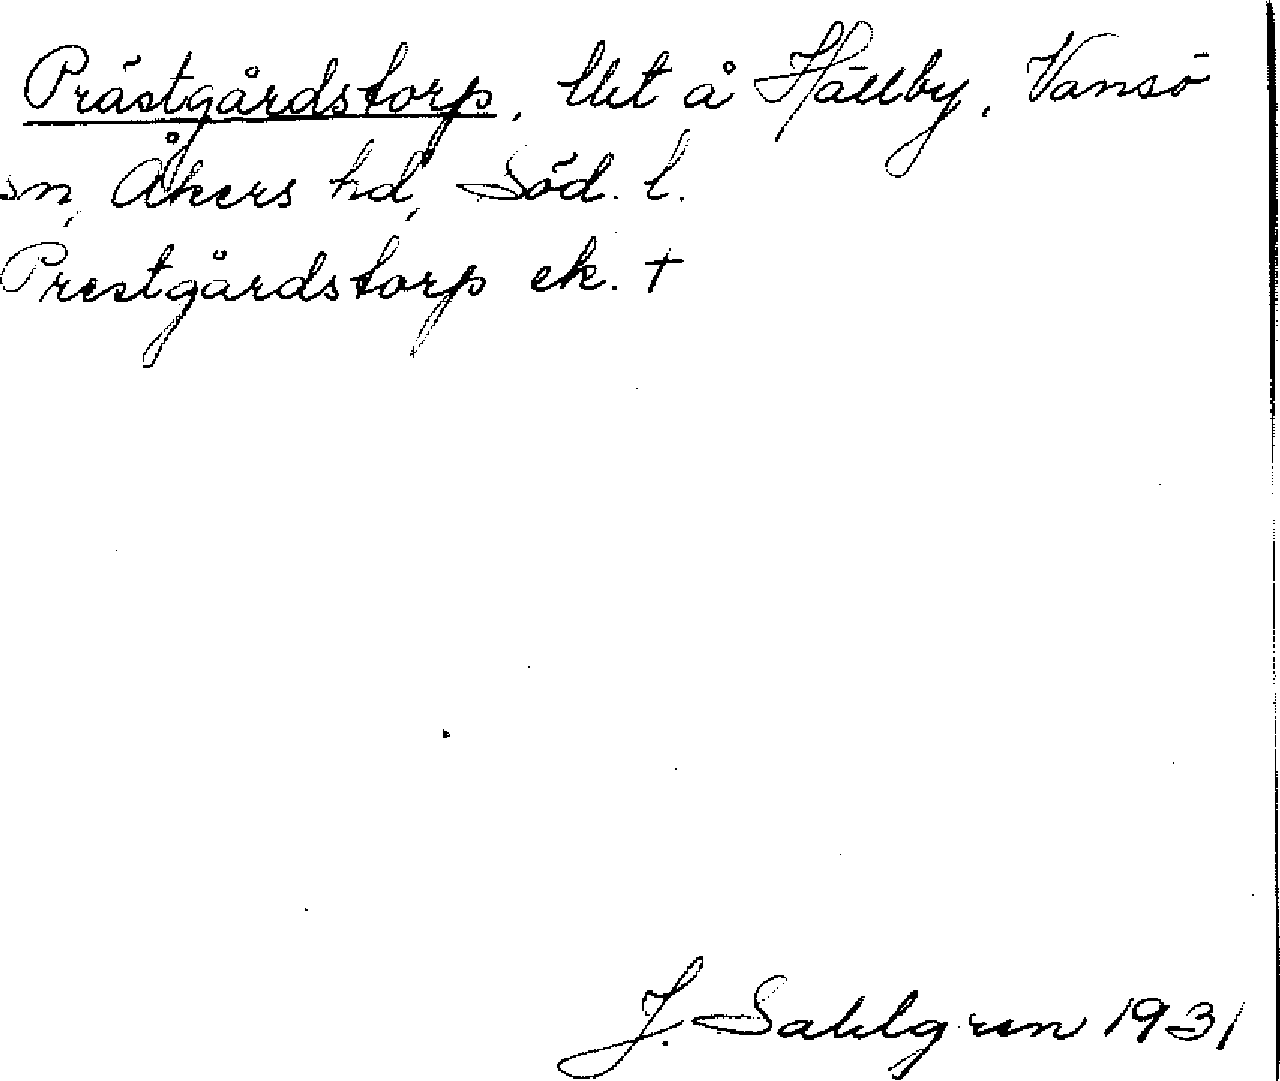 Prästgårdstorp, lht å Hällby, Vansö
sn, Åkers hd, Söd. l.
Prestgårdstorp ek. †
J. Sahlgren 1931